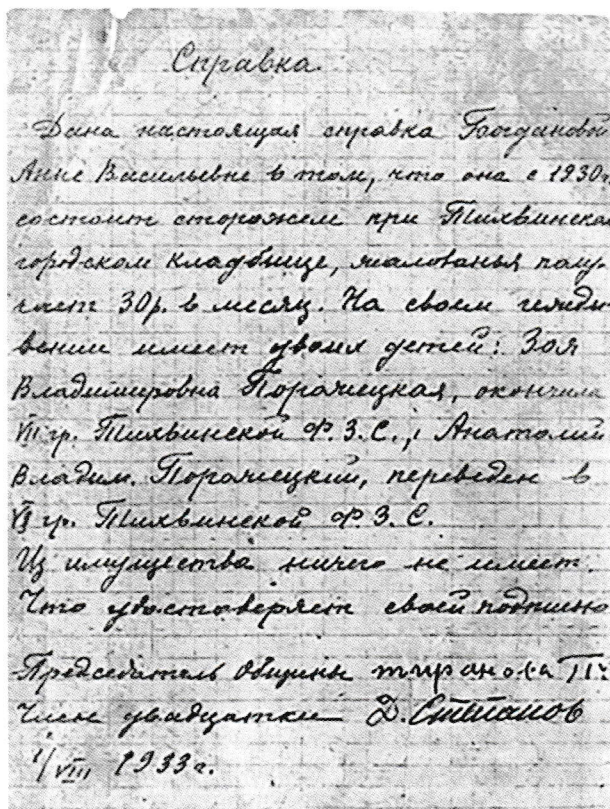 Справка.
Дана настоящая справка Богдановой
Анне Васильевне в том, что она с 1930г.
состоит сторожем при Тихвинском
городском кладбище, жалованья полу-
чает 30р. в месяц. На своем иждь
вении имеет двоих детей: Зоя
Владимировна Порачецкая, окончила
VII гр. Тихвинской Ф.З.С., Анатолий
Владим. Порачецкий, переведен в
VI гр. Тихвинской Ф.З.С.
Из имущества ничего не имеет.
Что удостоверяет своей подписью
Председатель Общины
Член двадцатки Д. Степанов
1/VIII 1933г.